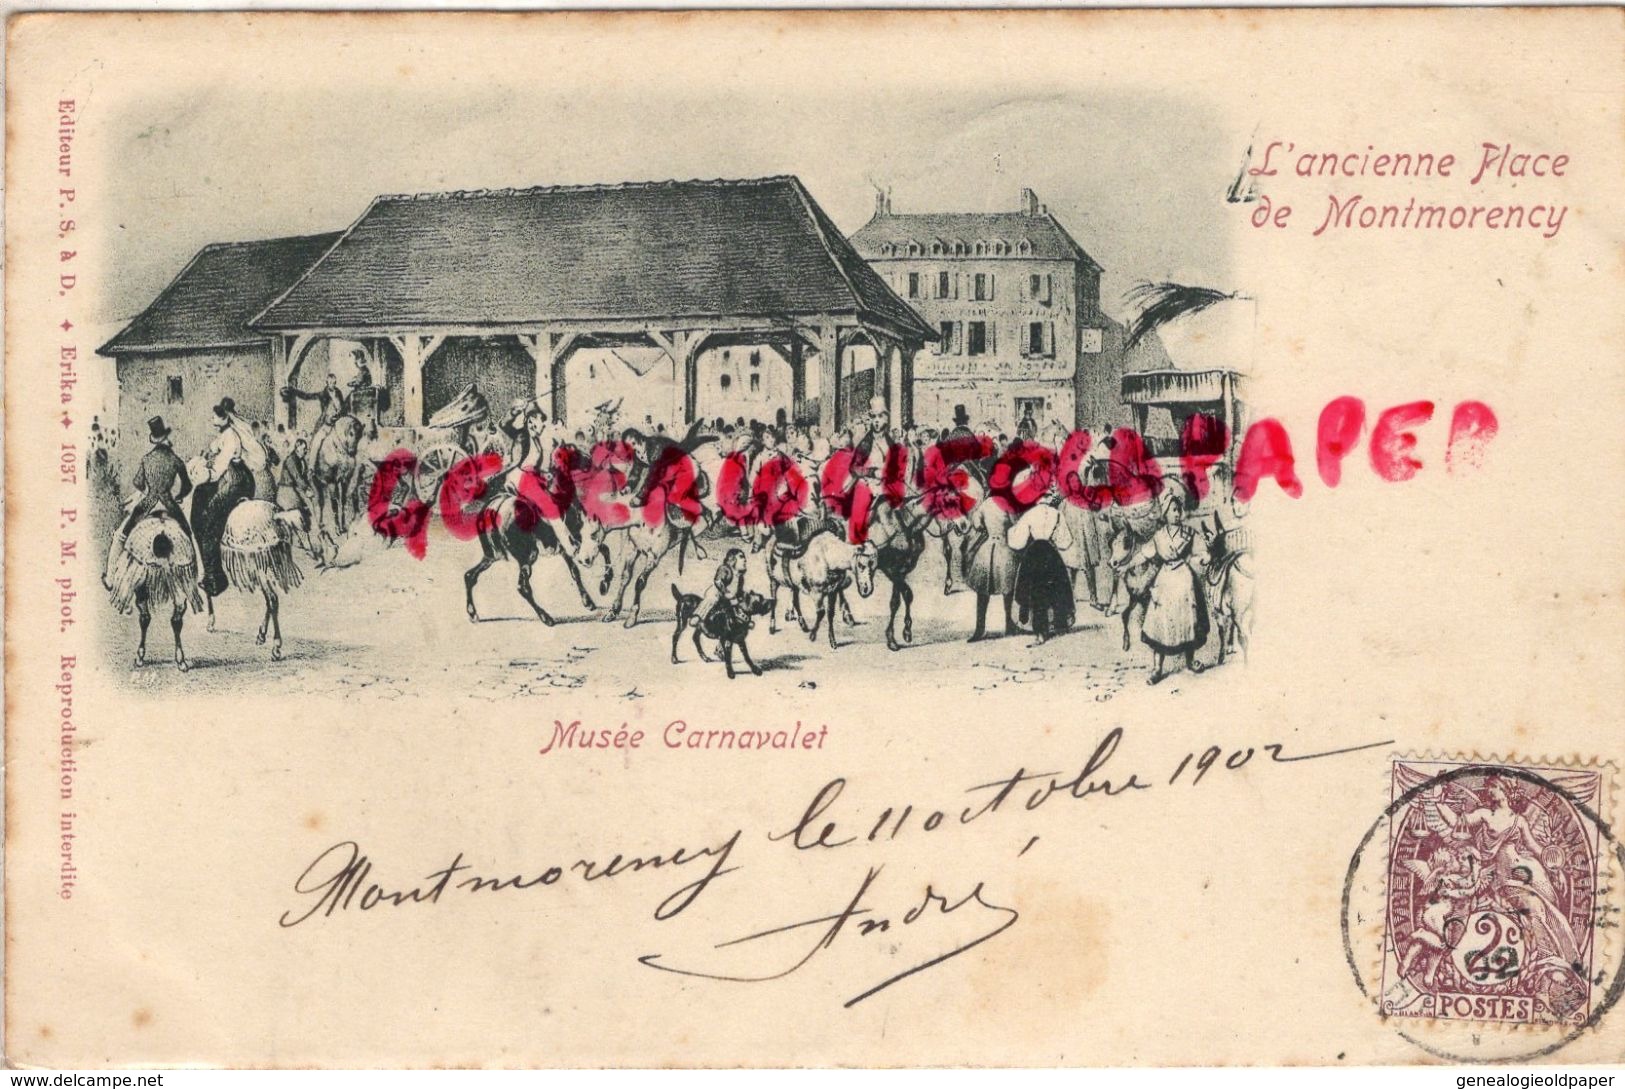 L'ancienne Place
de Montmorency
Editeur P. S. à D. ✦ Erika ✦ 1037 P. M. phot. Reproduction interdite
GENEALOGIEOLDPAPER
Musée Carnavalet
Montmorency le 11 octobre 1902
André
REPUBLIQUE FRANÇAISE
2c
POSTES
02
www.delcampe.net
genealogieoldpaper